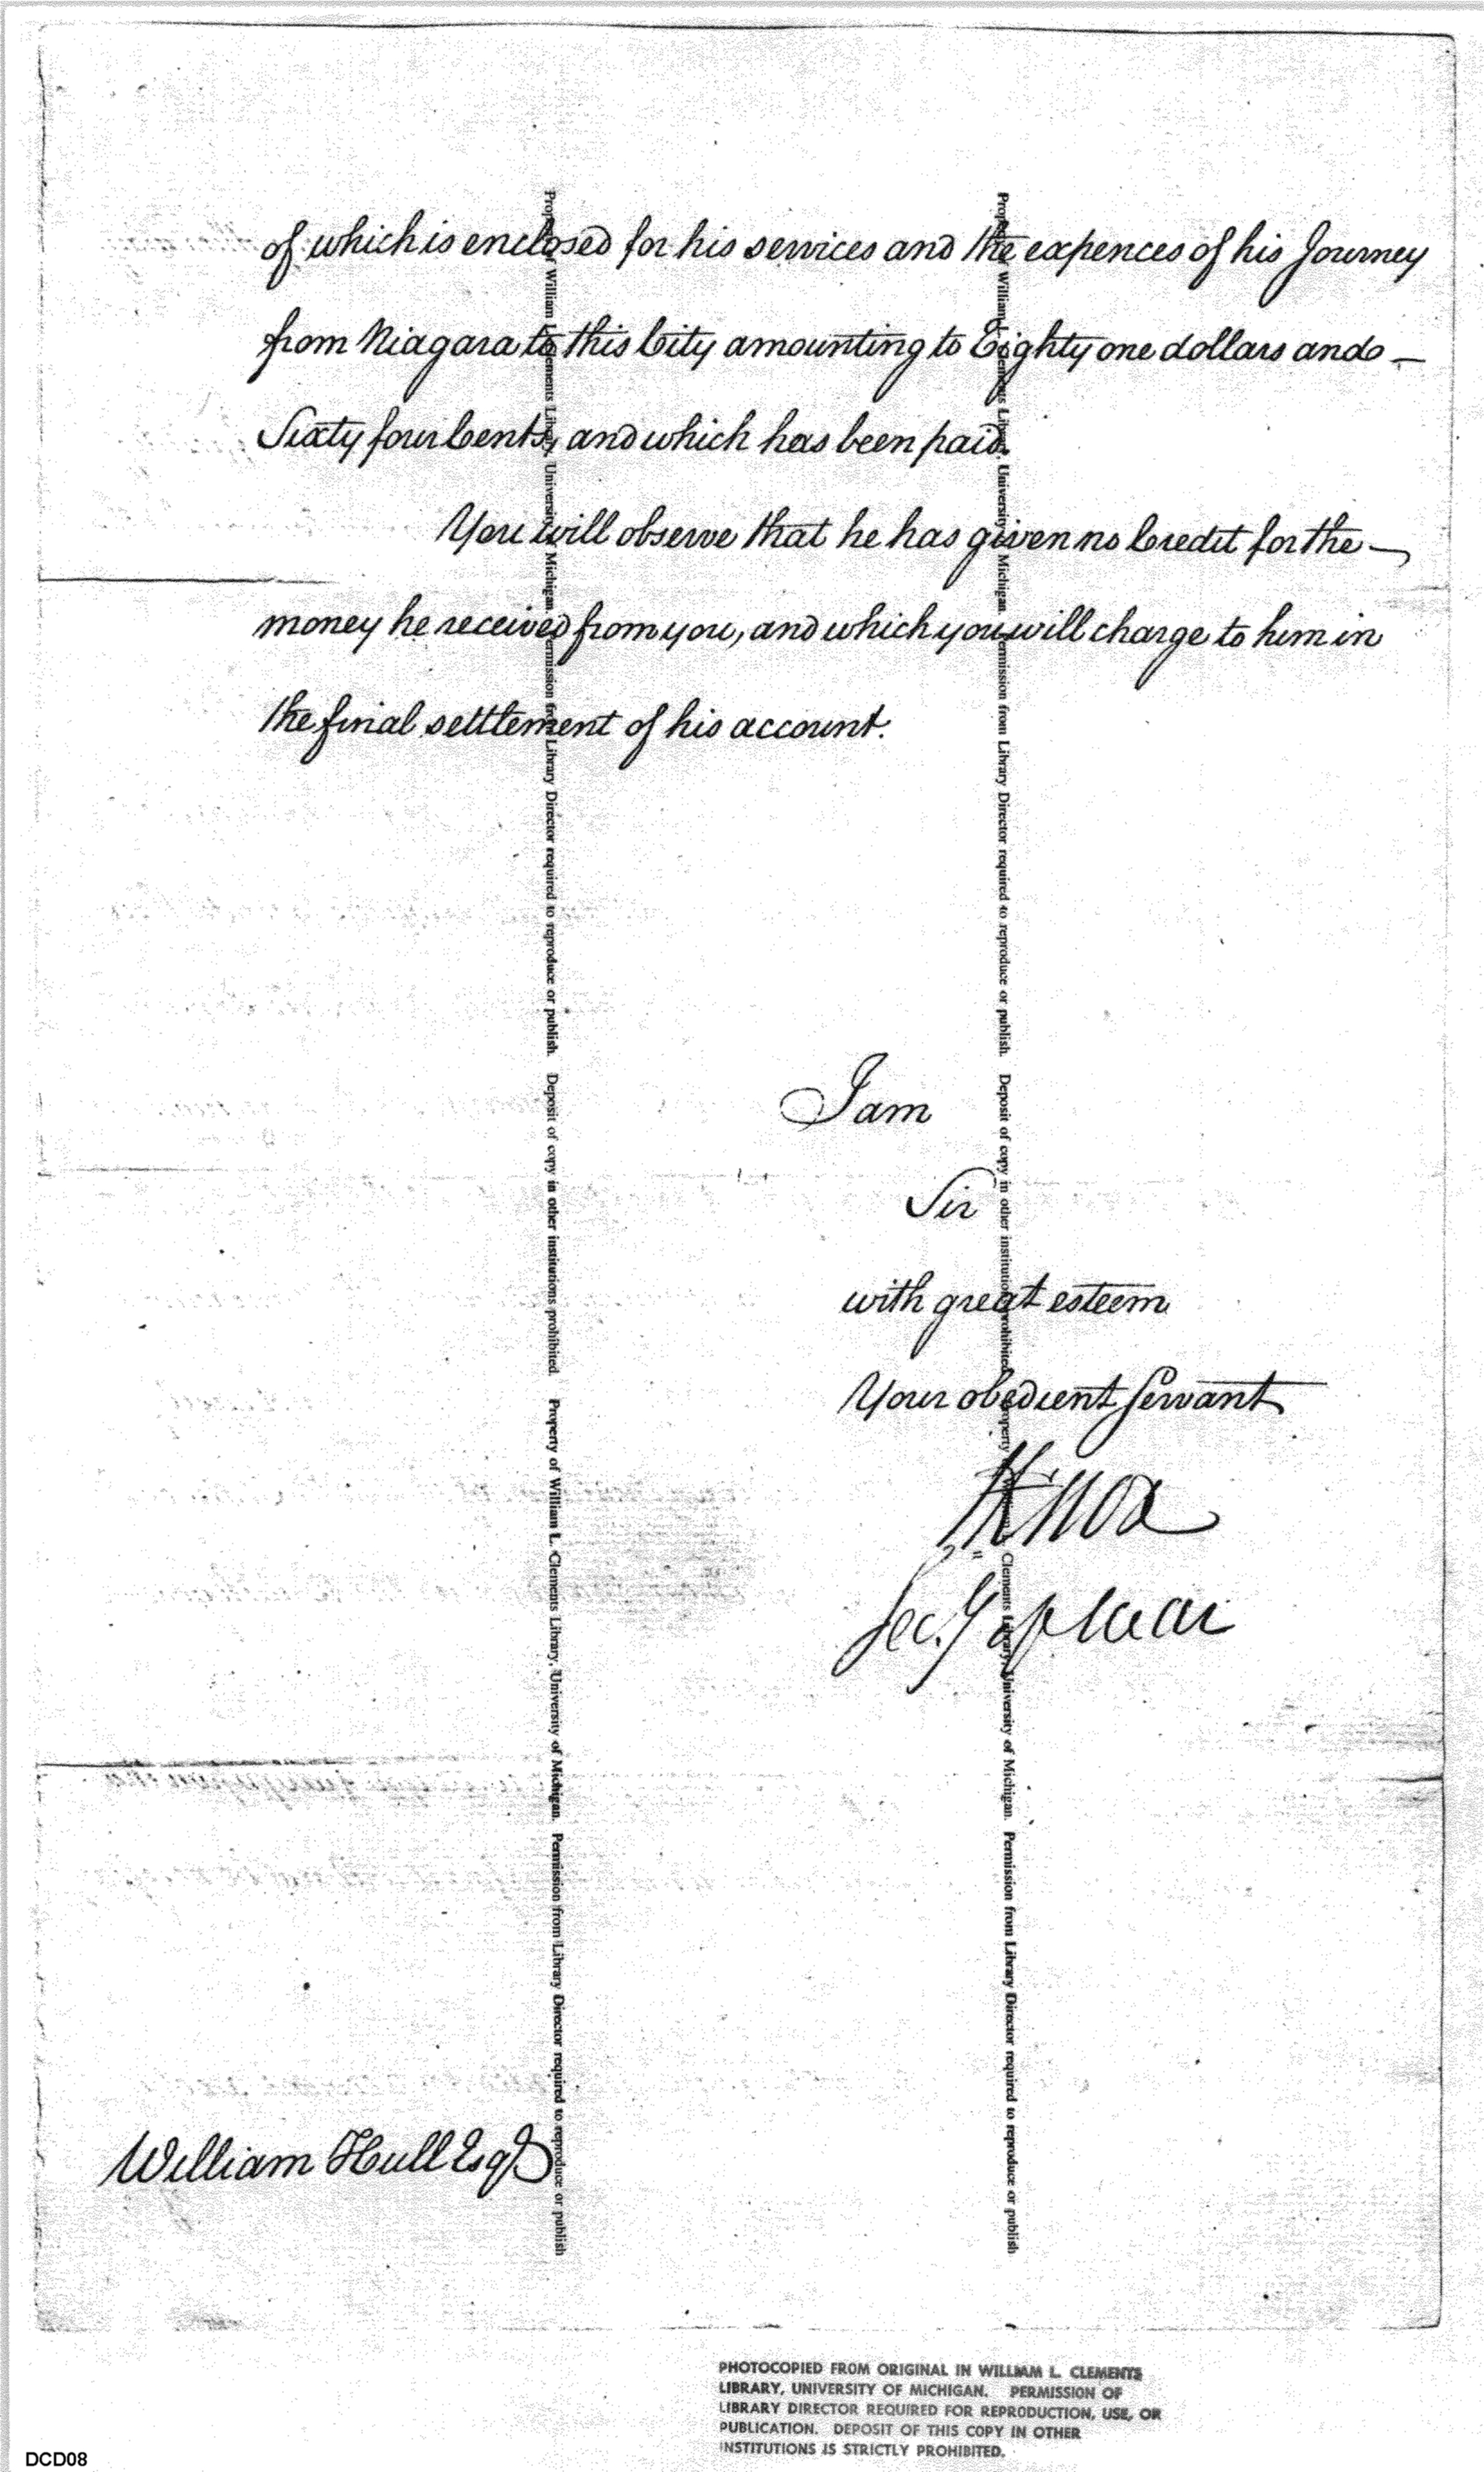 of which is enclosed for his services and the expences of his Journey
from Niagara to this City amounting to Eighty one dollars and —
Sixty four Cents, and which has been paid.
You will observe that he has given no Credit for the —
money he received from you, and which you will charge to him in
the final settlement of his account.
I am
Sir
with great esteem
Your obedient Servant
HKnox
Sec.y of War
William Hull Esqr
Property of William L. Clements Library, University of Michigan. Permission from Library Director required to reproduce or publish. Deposit of copy in other institutions prohibited. Property of William L. Clements Library, University of Michigan. Permission from Library Director required to reproduce or publish
Property of William L. Clements Library, University of Michigan. Permission from Library Director required to reproduce or publish. Deposit of copy in other institutions prohibited. Property of William L. Clements Library, University of Michigan. Permission from Library Director required to reproduce or publish
PHOTOCOPIED FROM ORIGINAL IN WILLIAM L. CLEMENTS
LIBRARY, UNIVERSITY OF MICHIGAN. PERMISSION OF
LIBRARY DIRECTOR REQUIRED FOR REPRODUCTION, USE, OR
PUBLICATION. DEPOSIT OF THIS COPY IN OTHER
INSTITUTIONS IS STRICTLY PROHIBITED.
DCD08